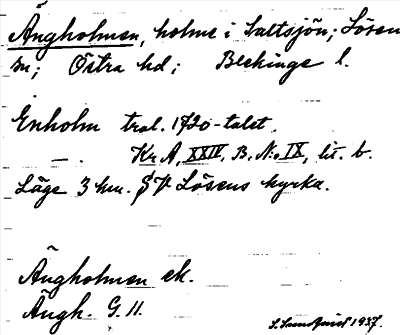 Ängholmen, holme i Saltsjön; Lösen
sn; Östra hd; Blekinge l.
Enholm tral. 1720-talet.
— . Kr. A, XXIV, B. No IX, lit. b.
Läge 3 km. SV Lösens kyrka.
Ängholmen ek.
Ängh. G. 11.
1937.